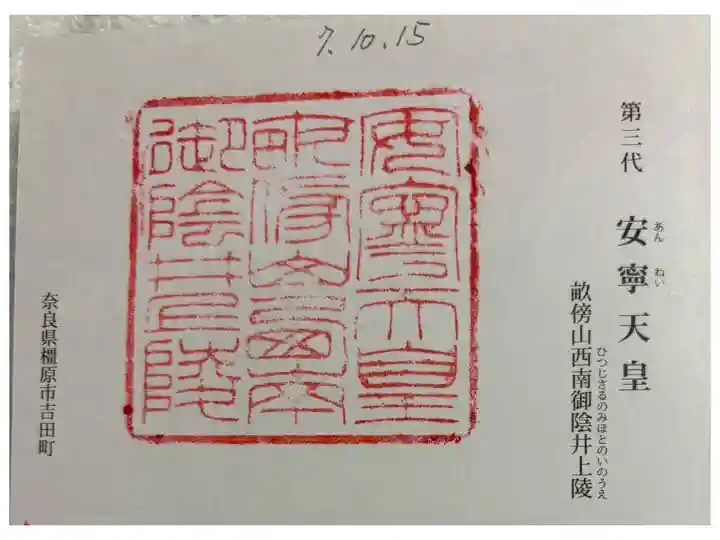 7.10.15
第三代 安寧天皇
あん ねい
畝傍山西南御陰井上陵
ひつじさるのみほとのいのうえ
安寧天皇
畝傍山西南
御陰井上陵
奈良県橿原市吉田町